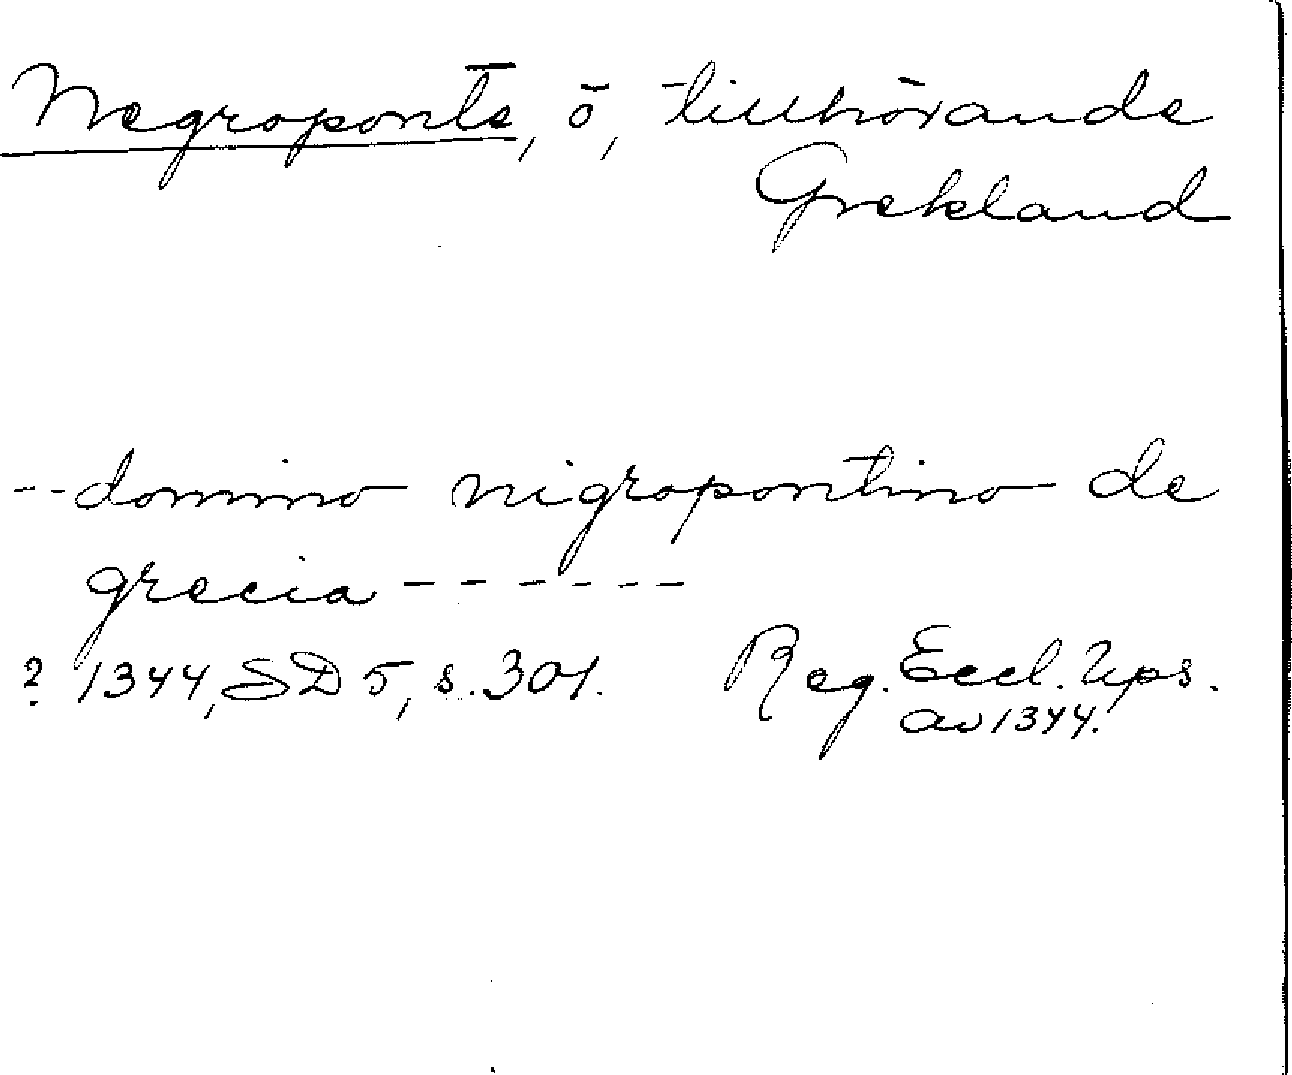 Negroponte, ö, tillhörande
Grekland
--domino nigropontino de
grecia ------
? 1344, SD 5, s. 301. Reg. Eccl. Ups.
av 1344.